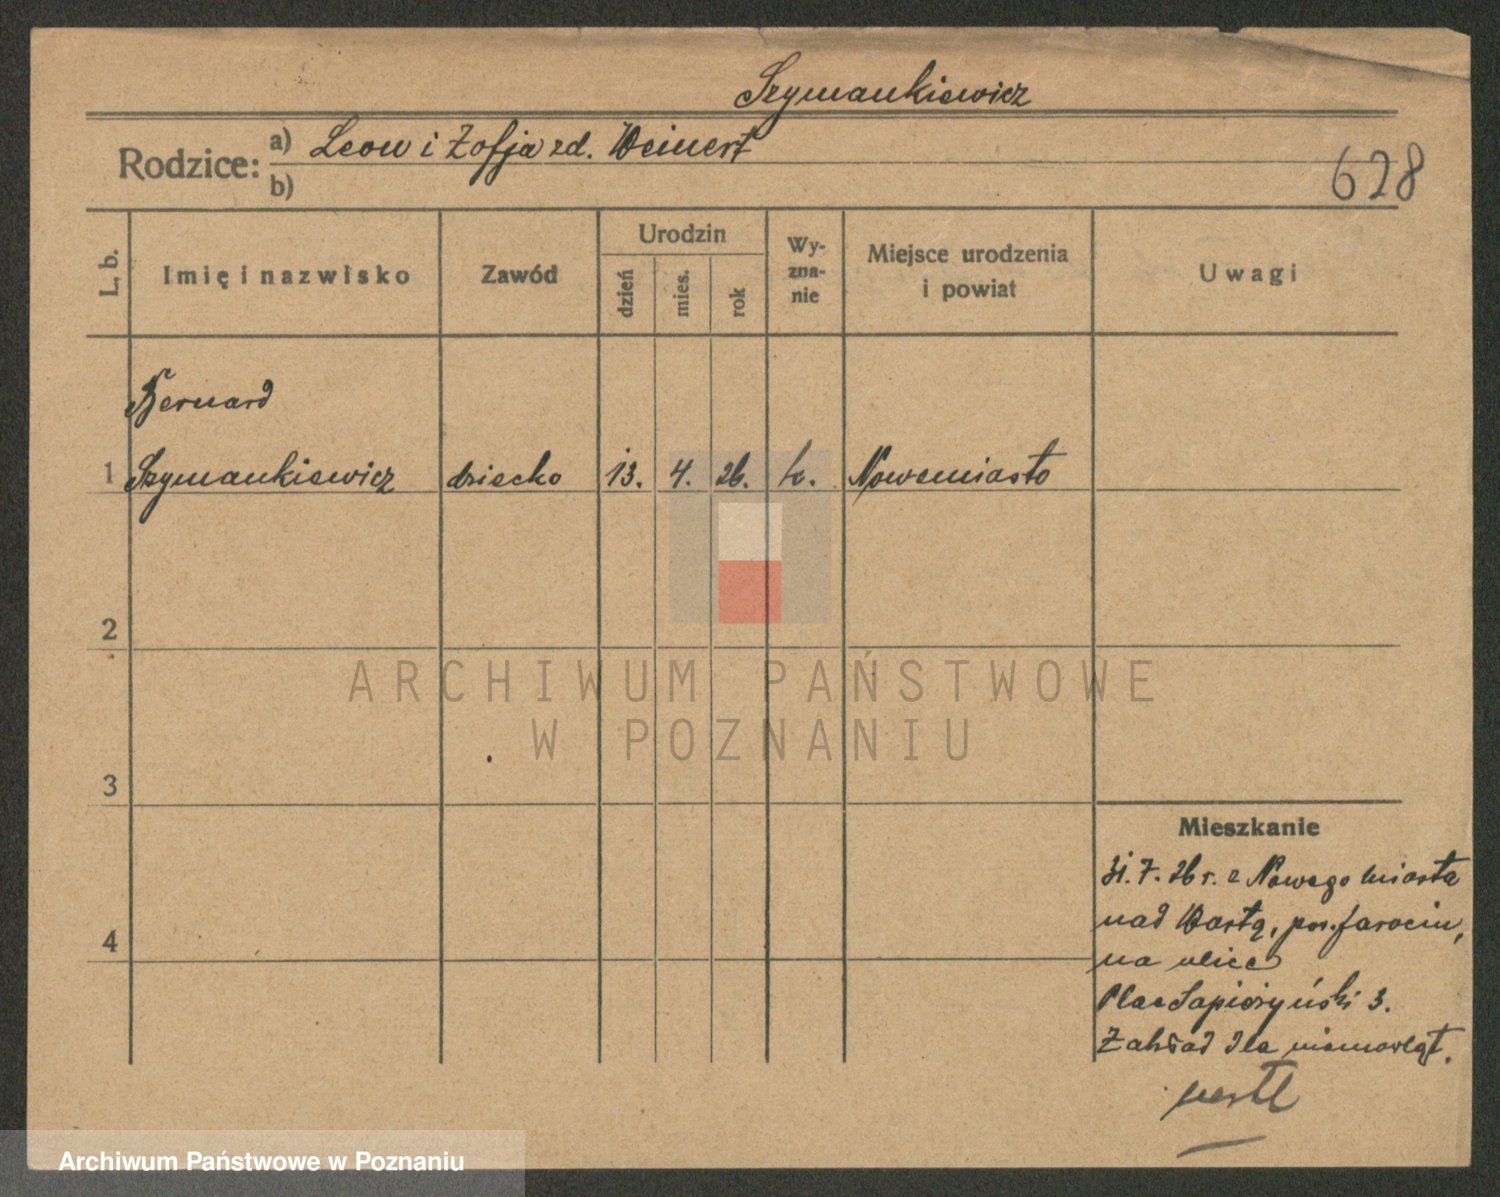 Szymankiewicz
Rodzice:
a) Leon i Zofja zd. Weinert
b)
628
L. b.
Imię i nazwisko
Zawód
Urodzin
dzień
mies.
rok
Wy-
zna-
nie
Miejsce urodzenia
i powiat
Uwagi
Bernard
1 Szymankiewicz dziecko 13. 4. 26. k. Nowemiasto
2
3
4
Mieszkanie
31. 7. 26 r. z Nowego miasta
nad Wartą, pow. Jarocin,
na ulicę
Plac Sapieżyński 3.
Zakład dla niemowląt.
ARCHIWUM PAŃSTWOWE
W POZNANIU
Archiwum Państwowe w Poznaniu